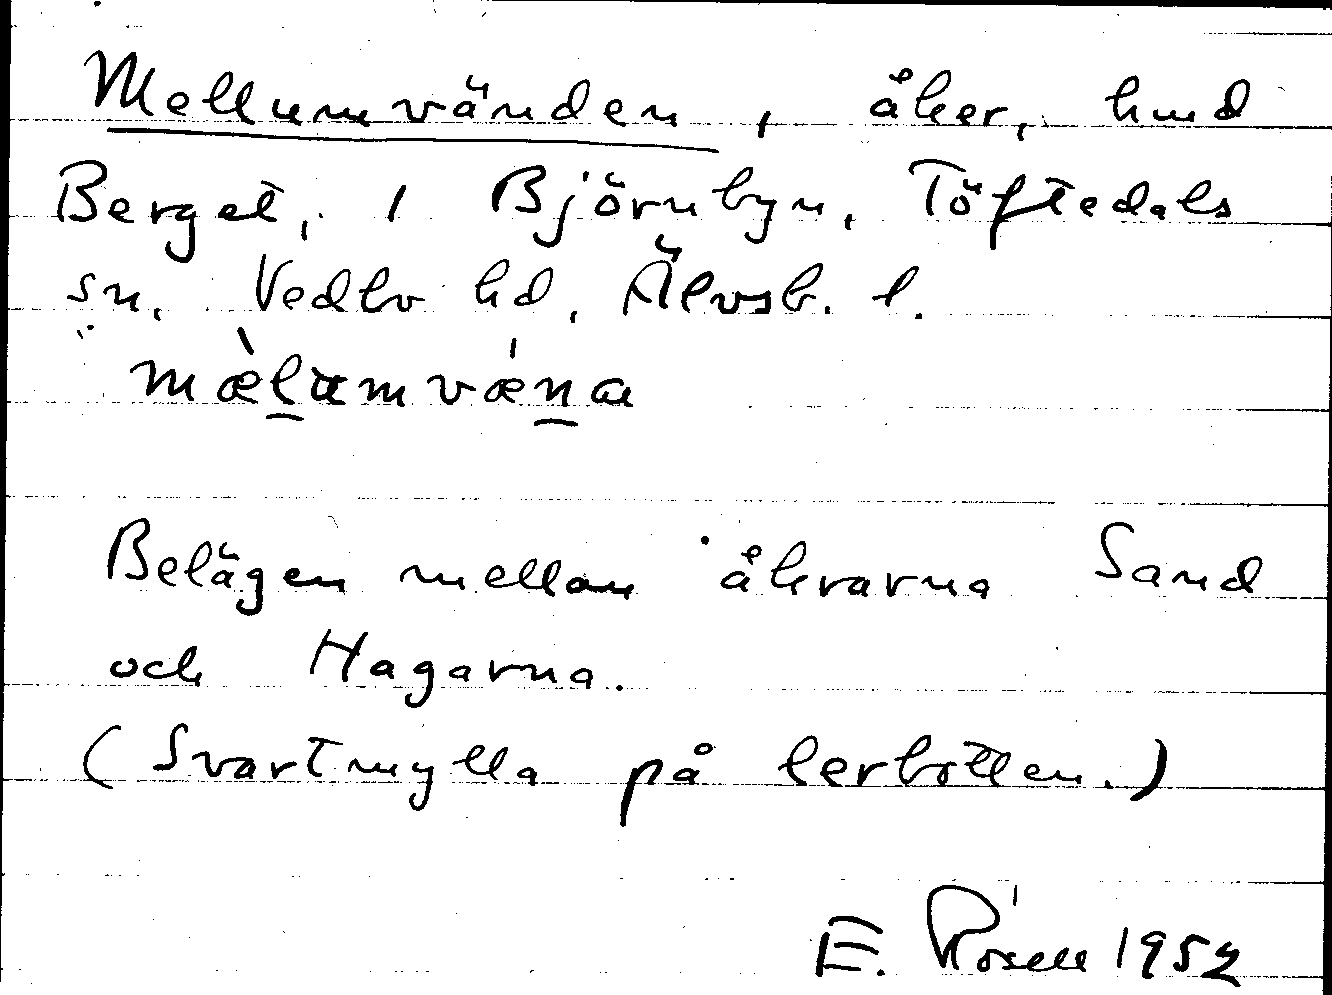 Mellumvänden, åker, hmd
Berget, 1 Björnbyn, Töftedals
sn, Vedbo hd, Älvsb. l.
mæ̀l̲umvǽn̲a
Belägen mellan åkrarna Sand
och Hagarna.
(Svartmylla på lerbotten.)
E. Rosell 1952